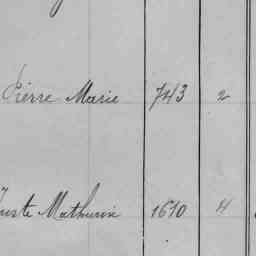 Pierre Marie 743 2
Mathurin 1610 4